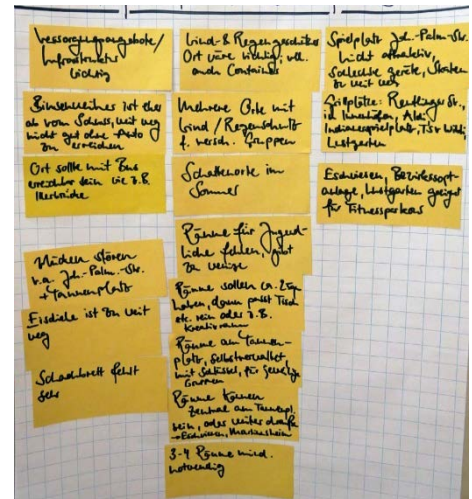 Versorgungsangebote/
Infrastruktur
wichtig
Binsenweiher ist eher
ab vom Schuss, weit weg
nicht gut ohne Auto
zu erreichen
Ort sollte mit Bus
erreichbar sein wie z.B.
Mücken stören
v.a. Joh.-Palm-Str.
+ Tannenplatz
Eisdiele ist zu weit
weg
Schachbrett fehlt
sehr
Wind- & Regengeschützter
Ort wäre wichtig; vll.
auch Container
Mehrere Orte mit
Wind/Regenschutz
f. versch. Gruppen
Schattenorte im
Sommer
Räume für Jugend-
liche fehlen, gibt
zu wenige
Räume sollen ca. 25qm
haben, dann passt Tisch
etc. rein oder z.B.
Kreativraum
Räume am Tannen-
platz, selbstverwaltet,
mit Schlüssel, für
Räume können
zentral am Tannenpl.
sein, oder weiter draußen
→ Eschwiesen,
3-4 Räume mind.
notwendig
Spielplatz Joh.-Palm-Str.
nicht attraktiv,
schlechte Geräte, Skaten
zu weit weg
Grillplätze: Reutlinger St.,
in Innenhöfen, Alter
Indianerspielplatz, TSV
Lustgarten
Eschwiesen, Bezirkssport-
anlage, Lustgarten geeignet
für Fitnessparkour